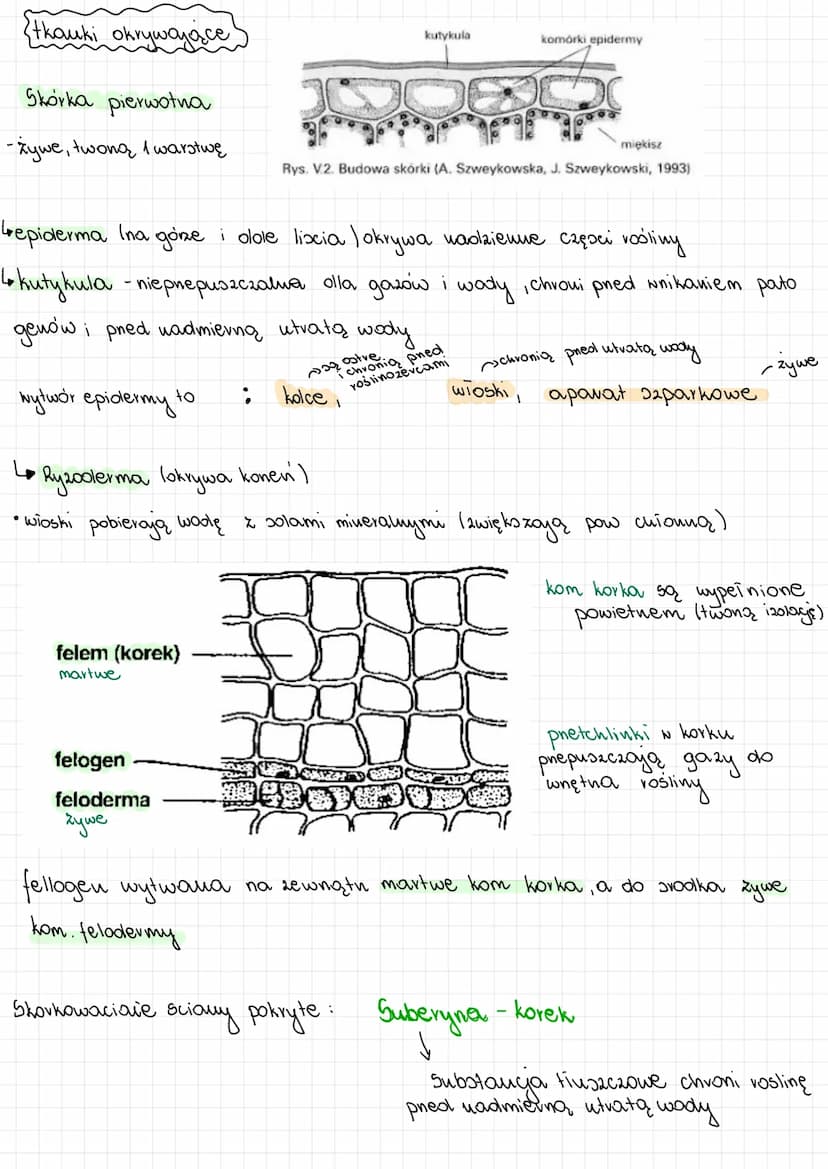 tkanki okrywające
kutykula
komórki epidermy
Skórka pierwotna
miękisz
- żywe, tworzą 1 warstwę
Rys. V.2. Budowa skórki (A. Szweykowska, J. Szweykowski, 1993)
↳ epiderma (na górze i dole liścia) okrywa nadziemne części rośliny
↳ kutykula - nieprzepuszczalna dla gazów i wody, chroni przed wnikaniem pato
genów i przed nadmierną utratą wody
→ są ostre i chronią przed roślinożercami
→ chronią przed utratą wody
żywe
wytwór epidermy to : kolce, włoski, aparat szparkowe
↳ Ryzoderma (okrywa korzeń)
• włoski pobierają wodę z solami mineralnymi (zwiększają pow chłonną)
kom korka są wypełnione
powietrzem (tworzą izolację)
felem (korek)
martwe
przetchlinki w korku
przepuszczają gazy do
wnętrza rośliny
felogen
feloderma
żywe
fellogen wytwarza na zewnątrz martwe kom korka, a do środka żywe
kom. felodermy
Skorkowaciałe ściany pokryte : Suberyna - korek
↓
Substancja tłuszczowe chroni roślinę
przed nadmierną utratą wody